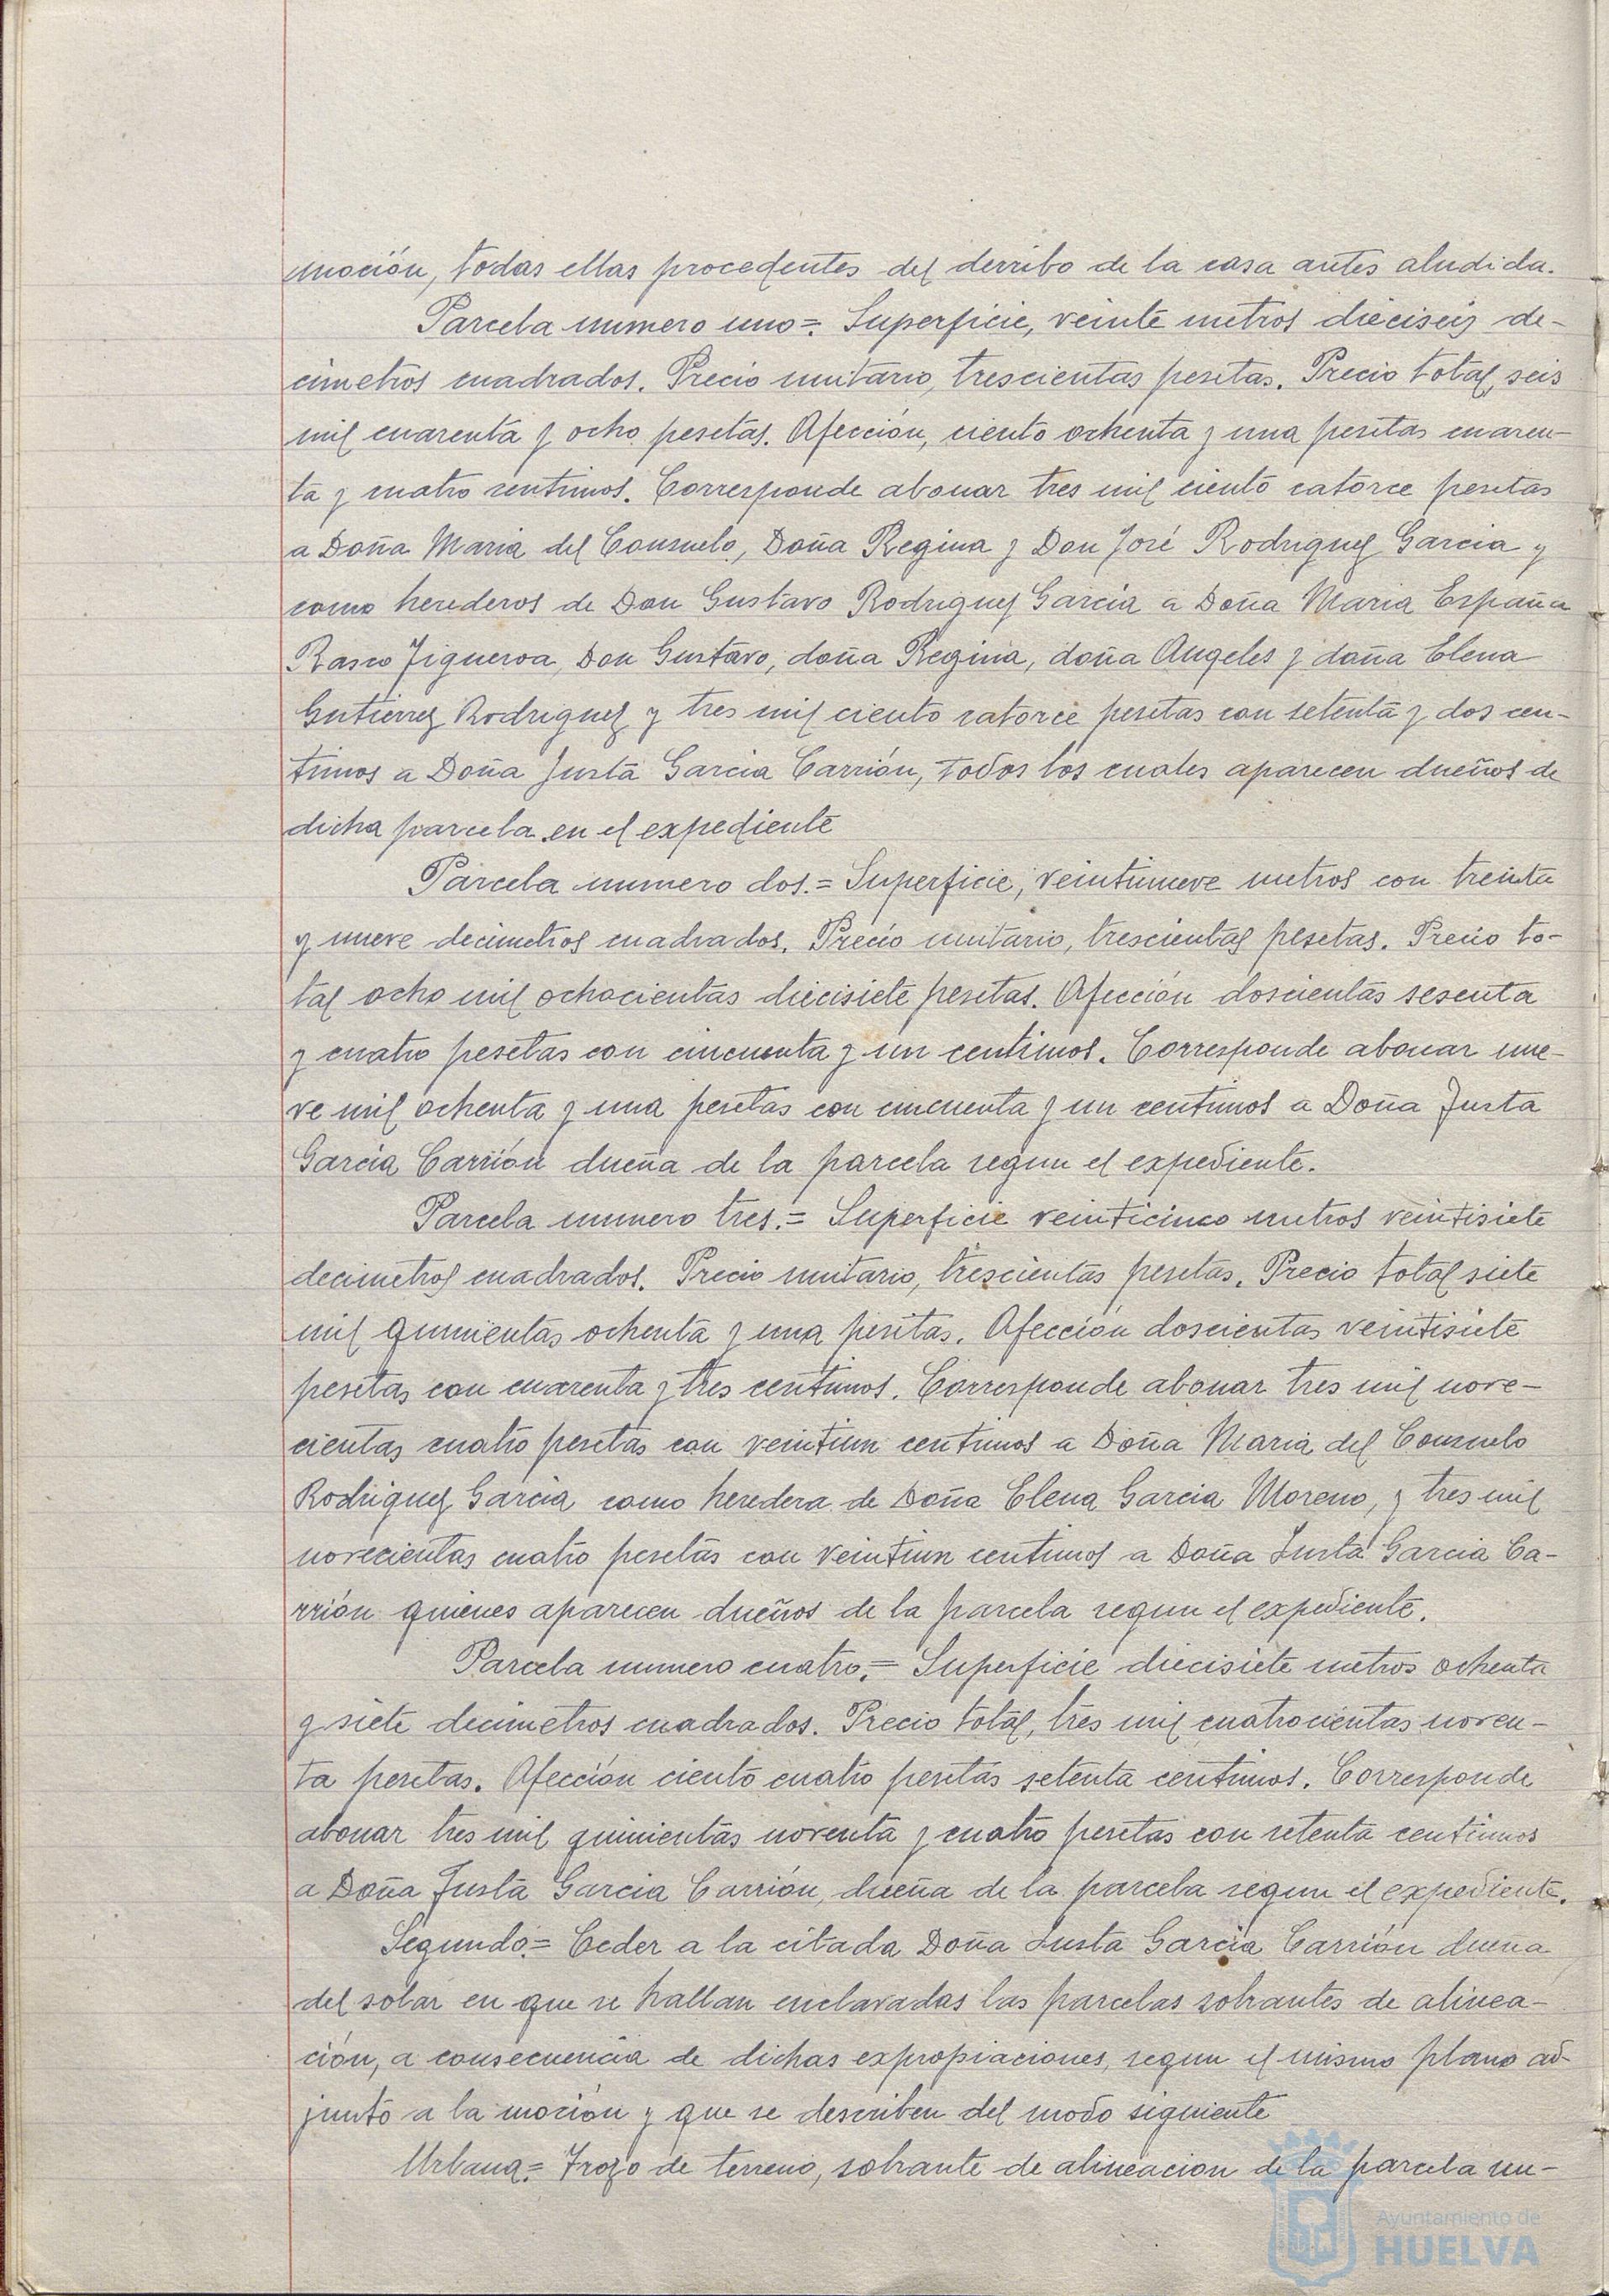 moción, todas ellas procedentes del derribo de la casa antes aludida.
Parcela numero uno=. Superficie, veinte metros dieciseis de-
cimetros cuadrados. Precio unitario, trescientas pesetas. Precio total, seis
mil cuarenta y ocho pesetas. Afección, ciento ochenta y una pesetas cuaren-
ta y cuatro centimos. Corresponde abonar tres mil ciento catorce pesetas
a Doña Maria del Consuelo, Doña Regina y Don José Rodriguez Garcia y
como herederos de Don Gustavo Rodriguez Garcia a Doña Maria España
Rasco Figueroa, Don Gustavo, doña Regina, doña Angeles y doña Elena
Gutierrez Rodriguez y tres mil ciento catorce pesetas con setenta y dos cen-
timos a Doña Justa Garcia Carrión, todos los cuales aparecen dueños de
dicha parcela en el expediente
Parcela numero dos.= Superficie, veintinueve metros con treinta
y nueve decimetros cuadrados. Precio unitario, trescientas pesetas. Precio to-
tal ocho mil ochocientas diecisiete pesetas. Afección doscientas sesenta
y cuatro pesetas con cincuenta y un centimos. Corresponde abonar nue-
ve mil ochenta y una pesetas con cincuenta y un centimos a Doña Justa
Garcia Carrión dueña de la parcela segun el expediente.
Parcela numero tres.= Superficie veinticinco metros veintisiete
decimetros cuadrados. Precio unitario, trescientas pesetas. Precio total siete
mil quinientas ochenta y una pesetas. Afección doscientas veintisiete
pesetas con cuarenta y tres centimos. Corresponde abonar tres mil nove-
cientas cuatro pesetas con veintiun centimos a Doña Maria del Consuelo
Rodriguez Garcia como heredera de Doña Elena Garcia Moreno, y tres mil
novecientas cuatro pesetas con veintiun centimos a Doña Justa Garcia Ca-
rrión quienes aparecen dueños de la parcela segun el expediente.
Parcela numero cuatro.= Superficie diecisiete metros ochenta
y siete decimetros cuadrados. Precio total, tres mil cuatrocientas noven-
ta pesetas. Afección ciento cuatro pesetas setenta centimos. Corresponde
abonar tres mil quinientas noventa y cuatro pesetas con setenta centimos
a Doña Justa Garcia Carrión, dueña de la parcela segun el expediente.
Segundo.= Ceder a la citada Doña Justa Garcia Carrión duena
del solar en que se hallan enclavadas las parcelas sobrantes de alinea-
ción, a consecuencia de dichas expropiaciones, segun el mismo plano ad-
junto a la moción y que se describen del modo siguiente
Urbana.= Trozo de terreno, sobrante de alineacion de la parcela nu-
Ayuntamiento de
HUELVA